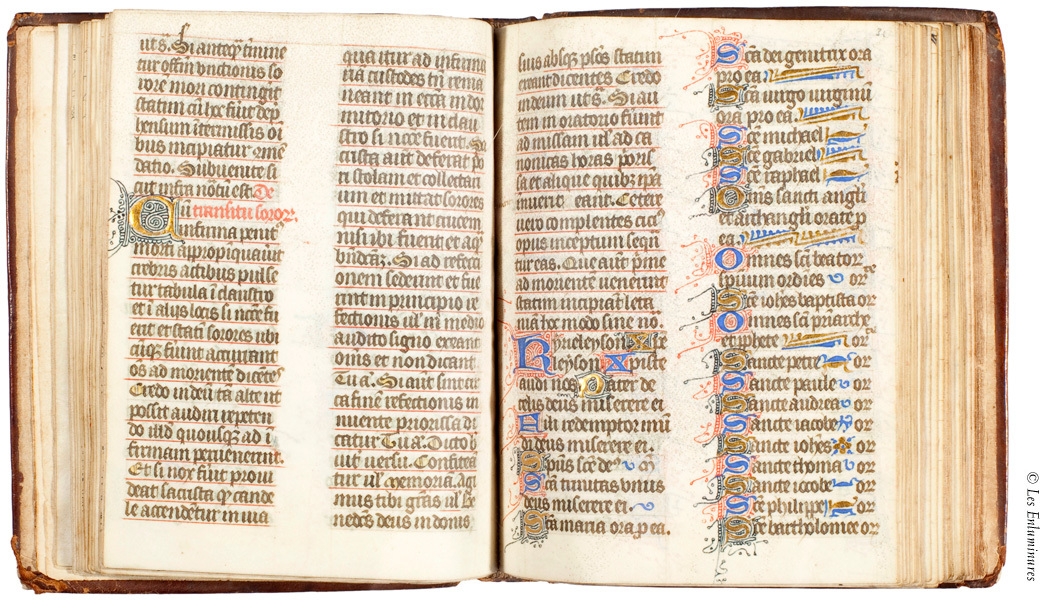 ut s̄. Si anteqͣ tmine
tur offm̄ unctionis so
rorē mori contingit
statim cū hoc fuīt dep
hensum ītermissis oī
bus incipiatur ꝯmē
datio. Subuenite si
cut infra notū est. De
transitu soror.
Cū infirma penit
morti appropīquauīt
crebris actibus pulse
tur tabula ī claustro
et ī alijs locis si necē fu
erit et statī sorores ubi
cūqꝫ fuīnt accurrant
os ad moriente dicētes
Credo in deū tā alte ut
possit audiri repeten
do illd quousqꝫ ad ī
firmam peruenerint.
Et si nox fuīt proui
deat sacrista qͥ cande
le accendetur in uia
qua itur ad infirmā
nā custodes tm̄ rema
neant in ecca in dor
mitorio et in clau
stro si necē fuerit. Sa
crista aut deferat
ri stolam et collectari
um et mittat sorores
qui deferant crucem
nisi ibi fuerit et aqͣ
bndcāꝫ. Si ad refecti
onem sederint et fue
rint in principio re
fectionis ul in medio
audito signo exeant
omīs et non dicant.
Tu a. Si aūt sint cir
ca finē refectionis in
nuente priorissa di
catur Tu a. Dicto b
uit uersu. Confitea
tur ul Memoria. Aqͥ
mus tibi grās ul Be
nedcs̄ deus in donis
suis absqꝫ ps̄os statim
exeant dicentes Credo
in deum ut s̄. Si au
tem in oratorio fuīnt
ad missam ul ad ca
nonicas horas poris
sa et alique quibꝫ ipā
inuerit eant. Cetere
uero complentes ciciꝰ
opus inceptum seqn̄
tur eas. Que aūt prīe
ad moriente uenerint
statim incipiāt leta
nia hoc modo sine no.
Kyrieleyson Xpe
leyson Xpiste
audi nos Pater de
celis deus miserere ei
Fili redemptor mū
di deus miserere ei.
Spūs scē dēs
Scā trinitas unus
deus miserere ei.
Scā maria ora p ea.
Scā dei genitrix ora
pro ea.
Scā uirgo uirginū
ora pro ea.
Scē michael
Scē gabriel
Scē raphael
Omīs sancti angli
et archangli orate p
ea.
Omnes scī beator
spirituum ordīes or
Scē iohēs baptista or
Omnes scī pīarche
et pphete or
Sancte petre or
Sancte paule or
Sancte andrea or
Sancte iacobe or
Sancte iohēs or
Sancte thoma or
Sancte iacobe or
Scē philippe or
Scē bartholomee or
© Les Enluminures